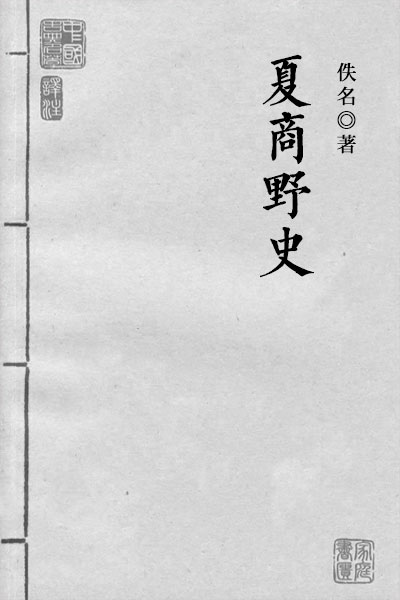 佚名◎著
夏商野史
中國
譯注
家庭
書屋